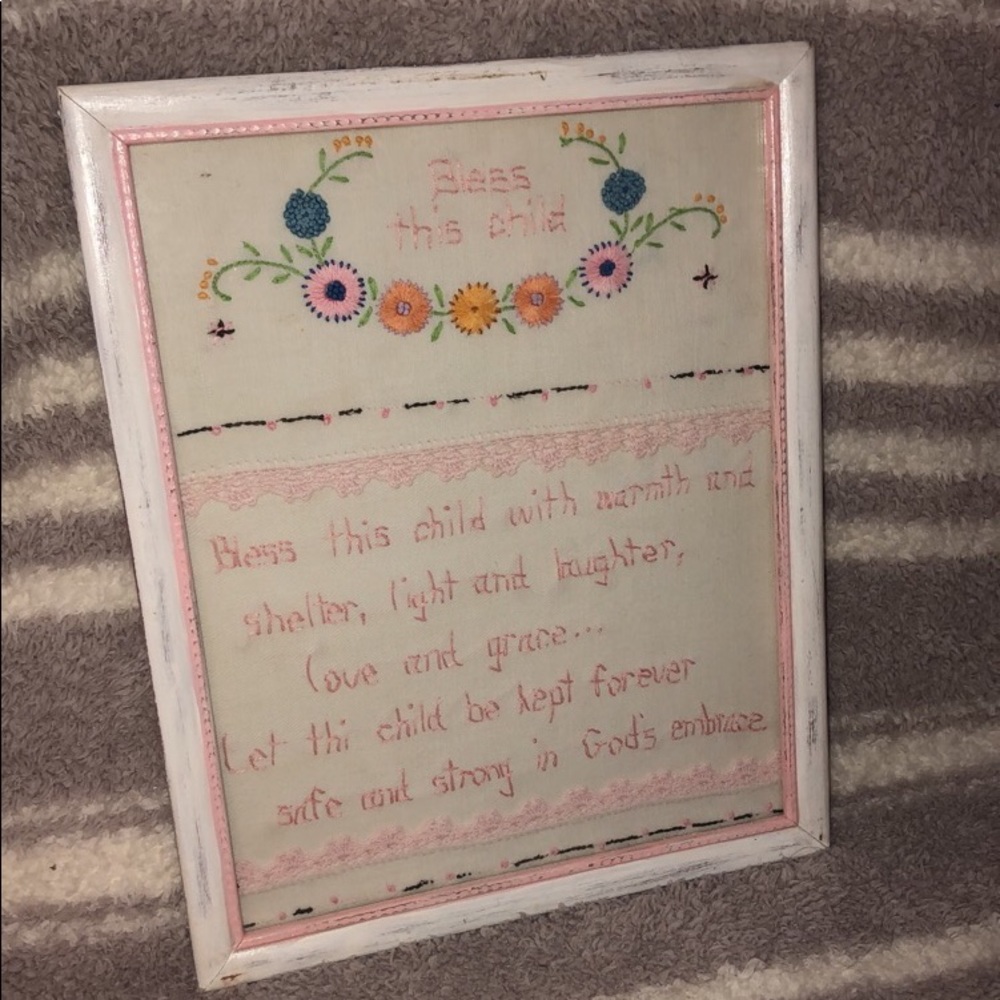 Bless
this child
Bless this child with warmth and
shelter, light and laughter,
love and grace...
Let thi child be kept forever
safe and strong in God's embrace.